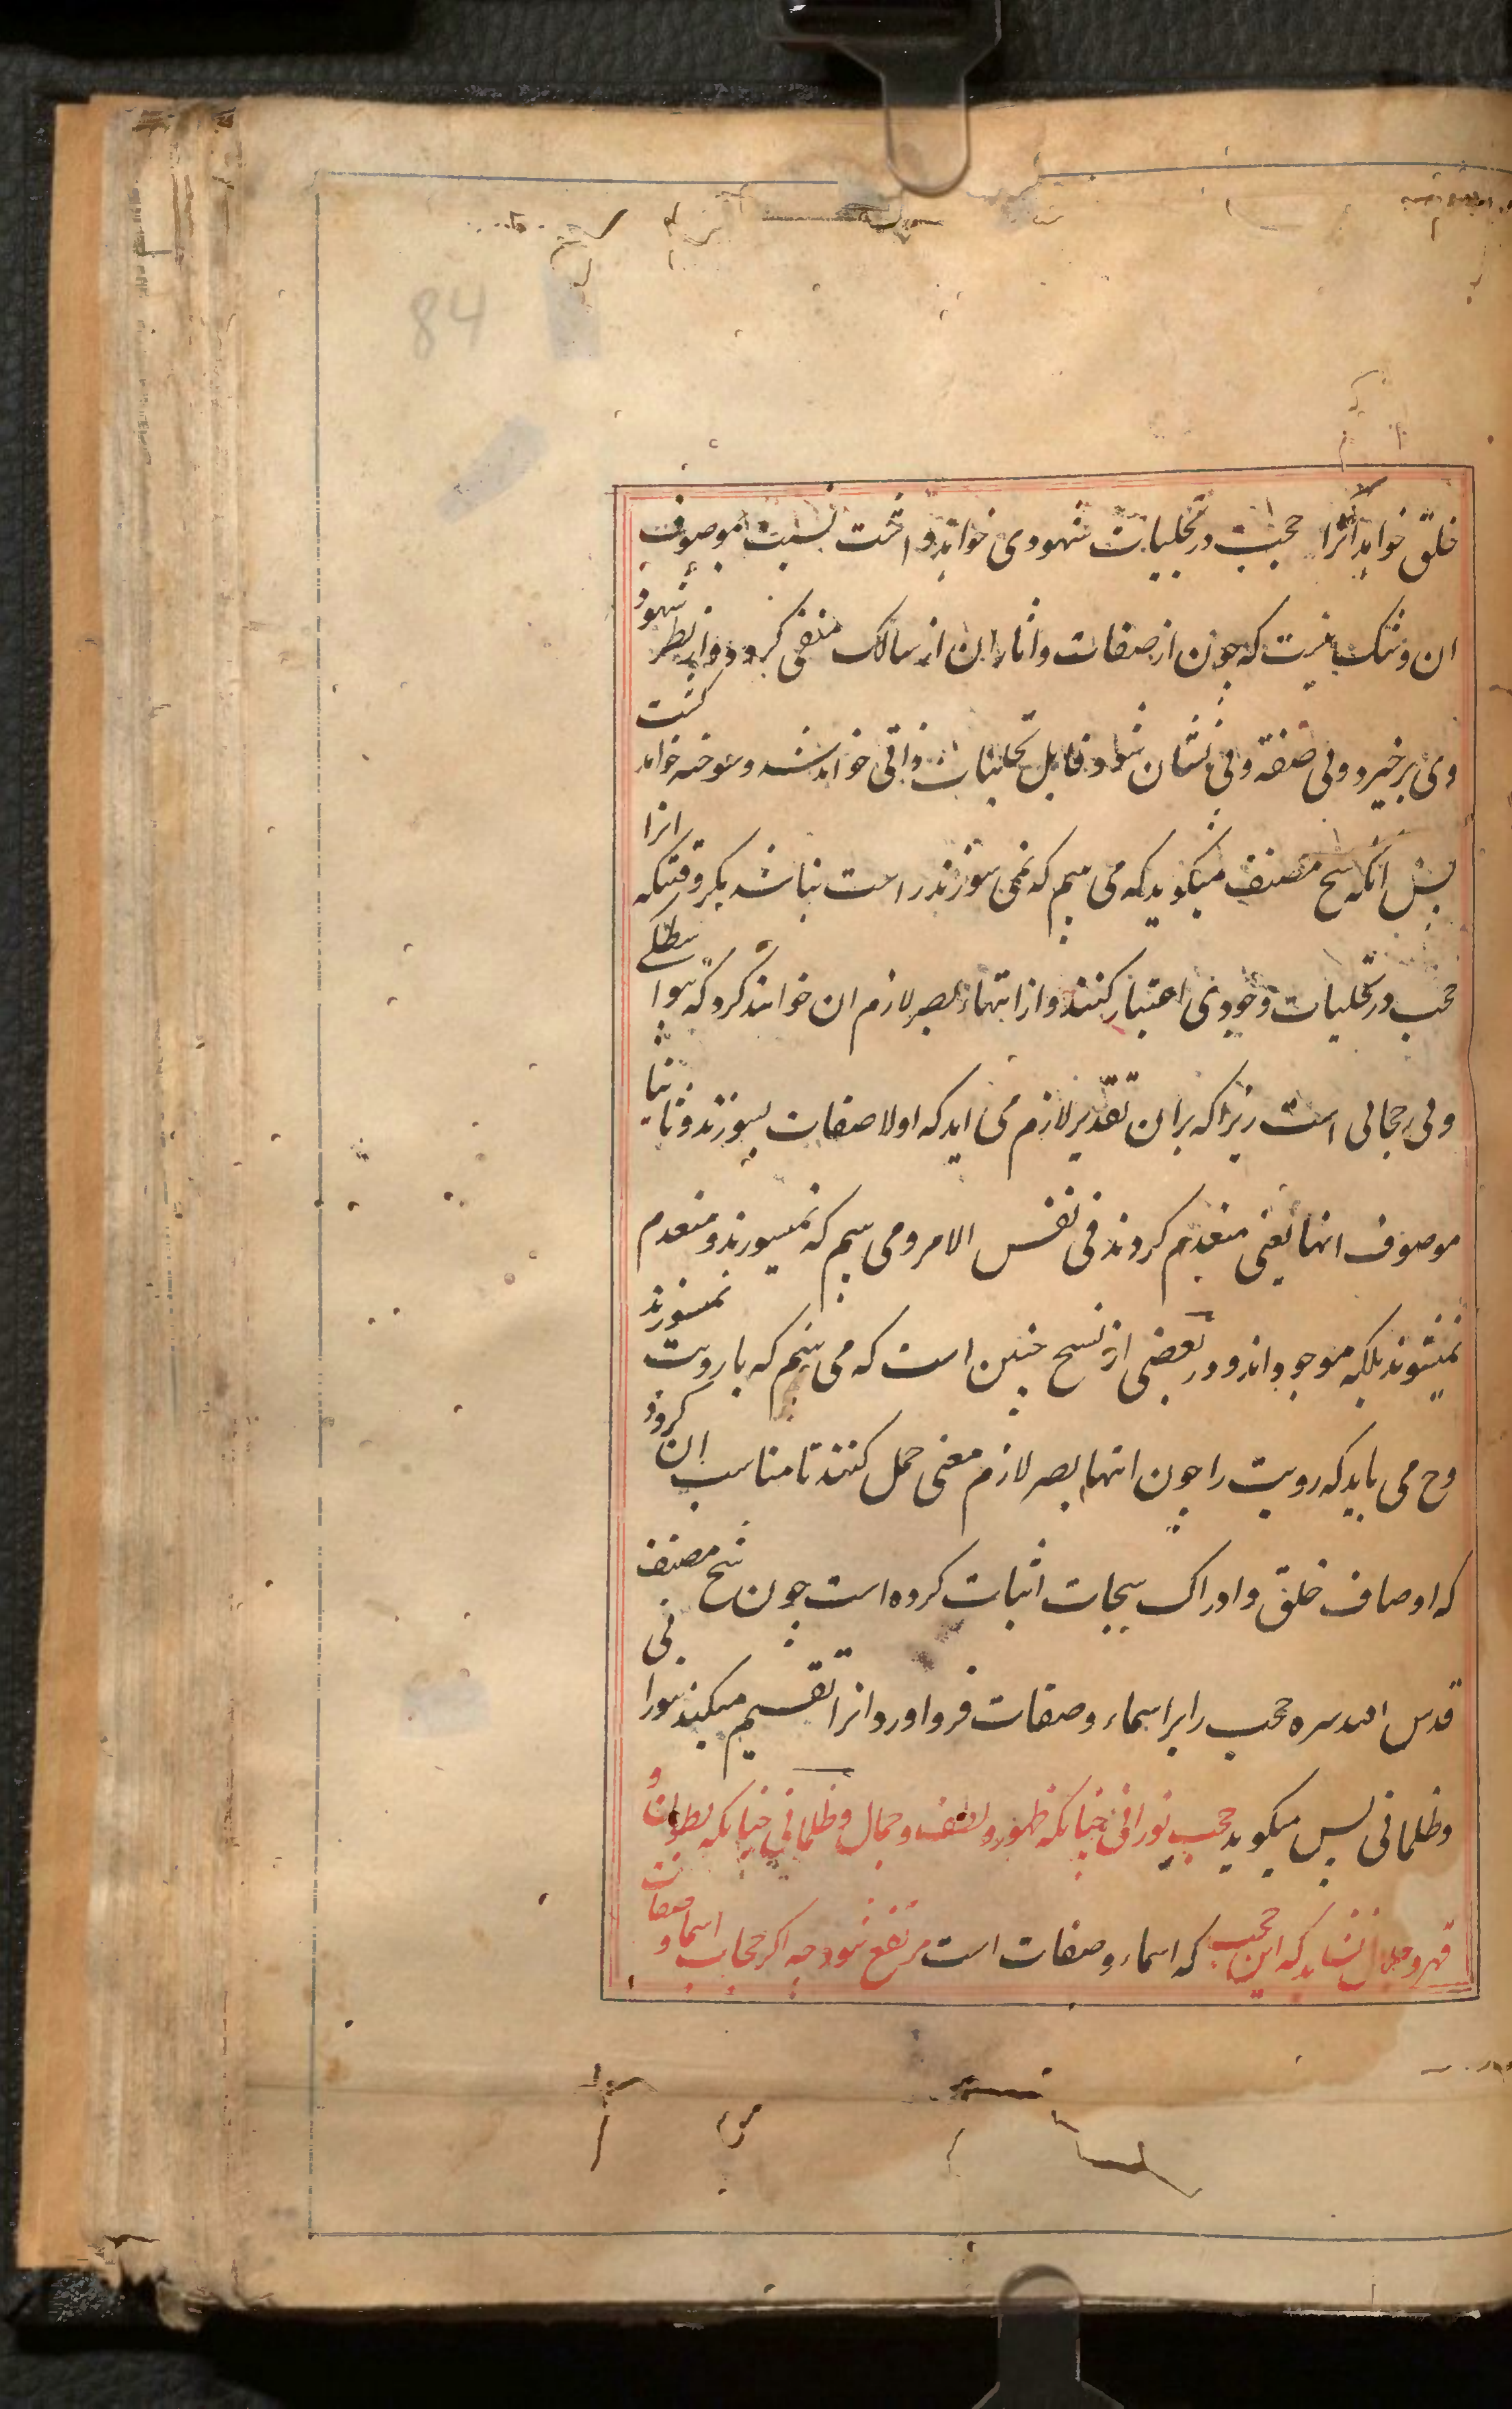 84
خلق خواند انرا حجب در تجلیات شهودی خواند و اخت نسبت موصوف
ان و شک نیست که چون از صفات و اثار ان از سالک منفی کردد و از نظر شهود
وی برخیزد و بی صفة و بی نشان شود قابل تجلیات ذاتی خواند شد و سوخته خواند کشت
پس انکه شیخ مصنف میکوید که می بینم که نمی سوزند راست نباشد مکر وقتیکه انرا
حجب در تجلیات وجودی اعتبار کنند و از انتهاء بصر لازم ان خوانند کرد که سوا
ولی جمالی است زیرا که بران تقدیر لازم می اید که اولا صفات بسوزند و ثانیا
موصوف انها یعنی منعدم کردند فی نفس الامر و می بینم که نمیسوزند و منعدم
نمیشوند بلکه موجود اند و در بعضی از نسخ چنین است که می بینم که با رویت نمیسوزند
و ح می باید که رویت را چون انتهاء بصر لازم معنی حمل کنند تا مناسب ان کردد
که اوصاف خلق و ادراک سبحات اثبات کرده است چون شیخ مصنف
قدس الله سره حجب را بر اسماء و صفات فرو اورد انرا تقسیم میکند بنورانی
و ظلمانی پس میکوید حجب نورانی چنانکه ظهور و لطف و جمال و ظلمانی چنانکه بطون و
قهر و جلال نشاید که این حجب که اسماء و صفات است مرتفع شود چه اکر حجاب اسما و صفات